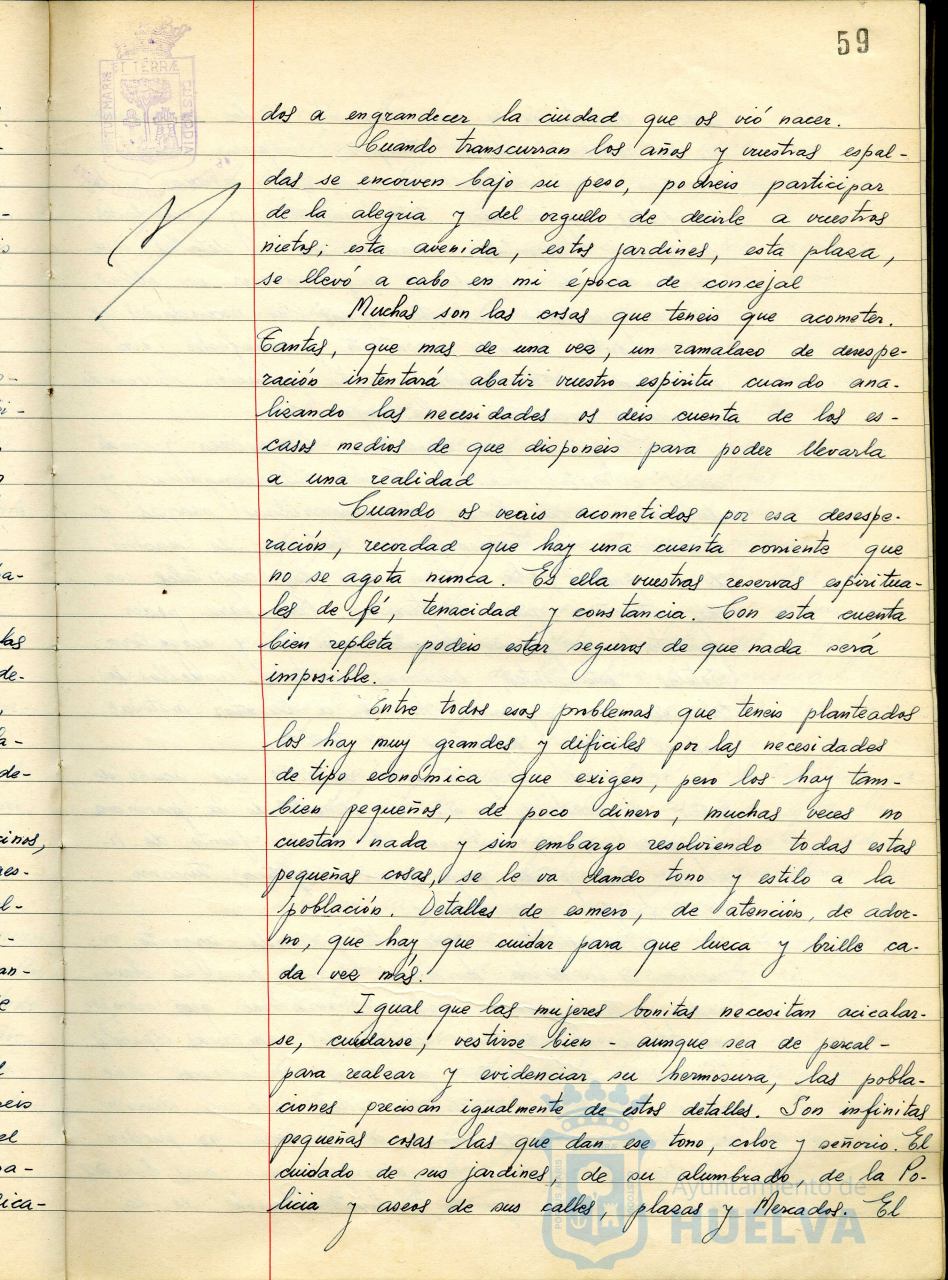 59
dos a engrandecer la ciudad que os vió nacer.
Cuando transcurran los años y vuestras espal-
das se encorven bajo su peso, podreis participar
de la alegria y del orgullo de decirle a vuestros
nietos; esta avenida, estos jardines, esta plaza,
se llevó a cabo en mi época de concejal
Muchas son las cosas que teneis que acometer.
Tantas, que mas de una vez, un ramalazo de desespe-
ración intentará abatir vuestro espiritu cuando ana-
lizando las necesidades os deis cuenta de los es-
casos medios de que disponeis para poder llevarla
a una realidad
Cuando os veais acometidos por esa desespe-
ración, recordad que hay una cuenta corriente que
no se agota nunca. Es ella vuestras reservas espiritua-
les de fé, tenacidad y constancia. Con esta cuenta
bien repleta podeis estar seguros de que nada será
imposible.
Entre todos esos problemas que teneis planteados
los hay muy grandes y dificiles por las necesidades
de tipo económica que exigen, pero los hay tam-
bien pequeños, de poco dinero, muchas veces no
cuestan nada y sin embargo resolviendo todas estas
pequeñas cosas, se le va dando tono y estilo a la
población. Detalles de esmero, de atención, de ador-
no, que hay que cuidar para que luzca y brille ca-
da vez más.
Igual que las mujeres bonitas necesitan acicalar-
se, cuidarse, vestirse bien - aunque sea de percal -
para realzar y evidenciar su hermosura, las pobla-
ciones precisan igualmente de estos detalles. Son infinitas
pequeñas cosas las que dan ese tono, color y señorio. El
cuidado de sus jardines, de su alumbrado, de la Po-
licia y aseos de sus calles, plazas y Mercados. El
Ayuntamiento de
HUELVA